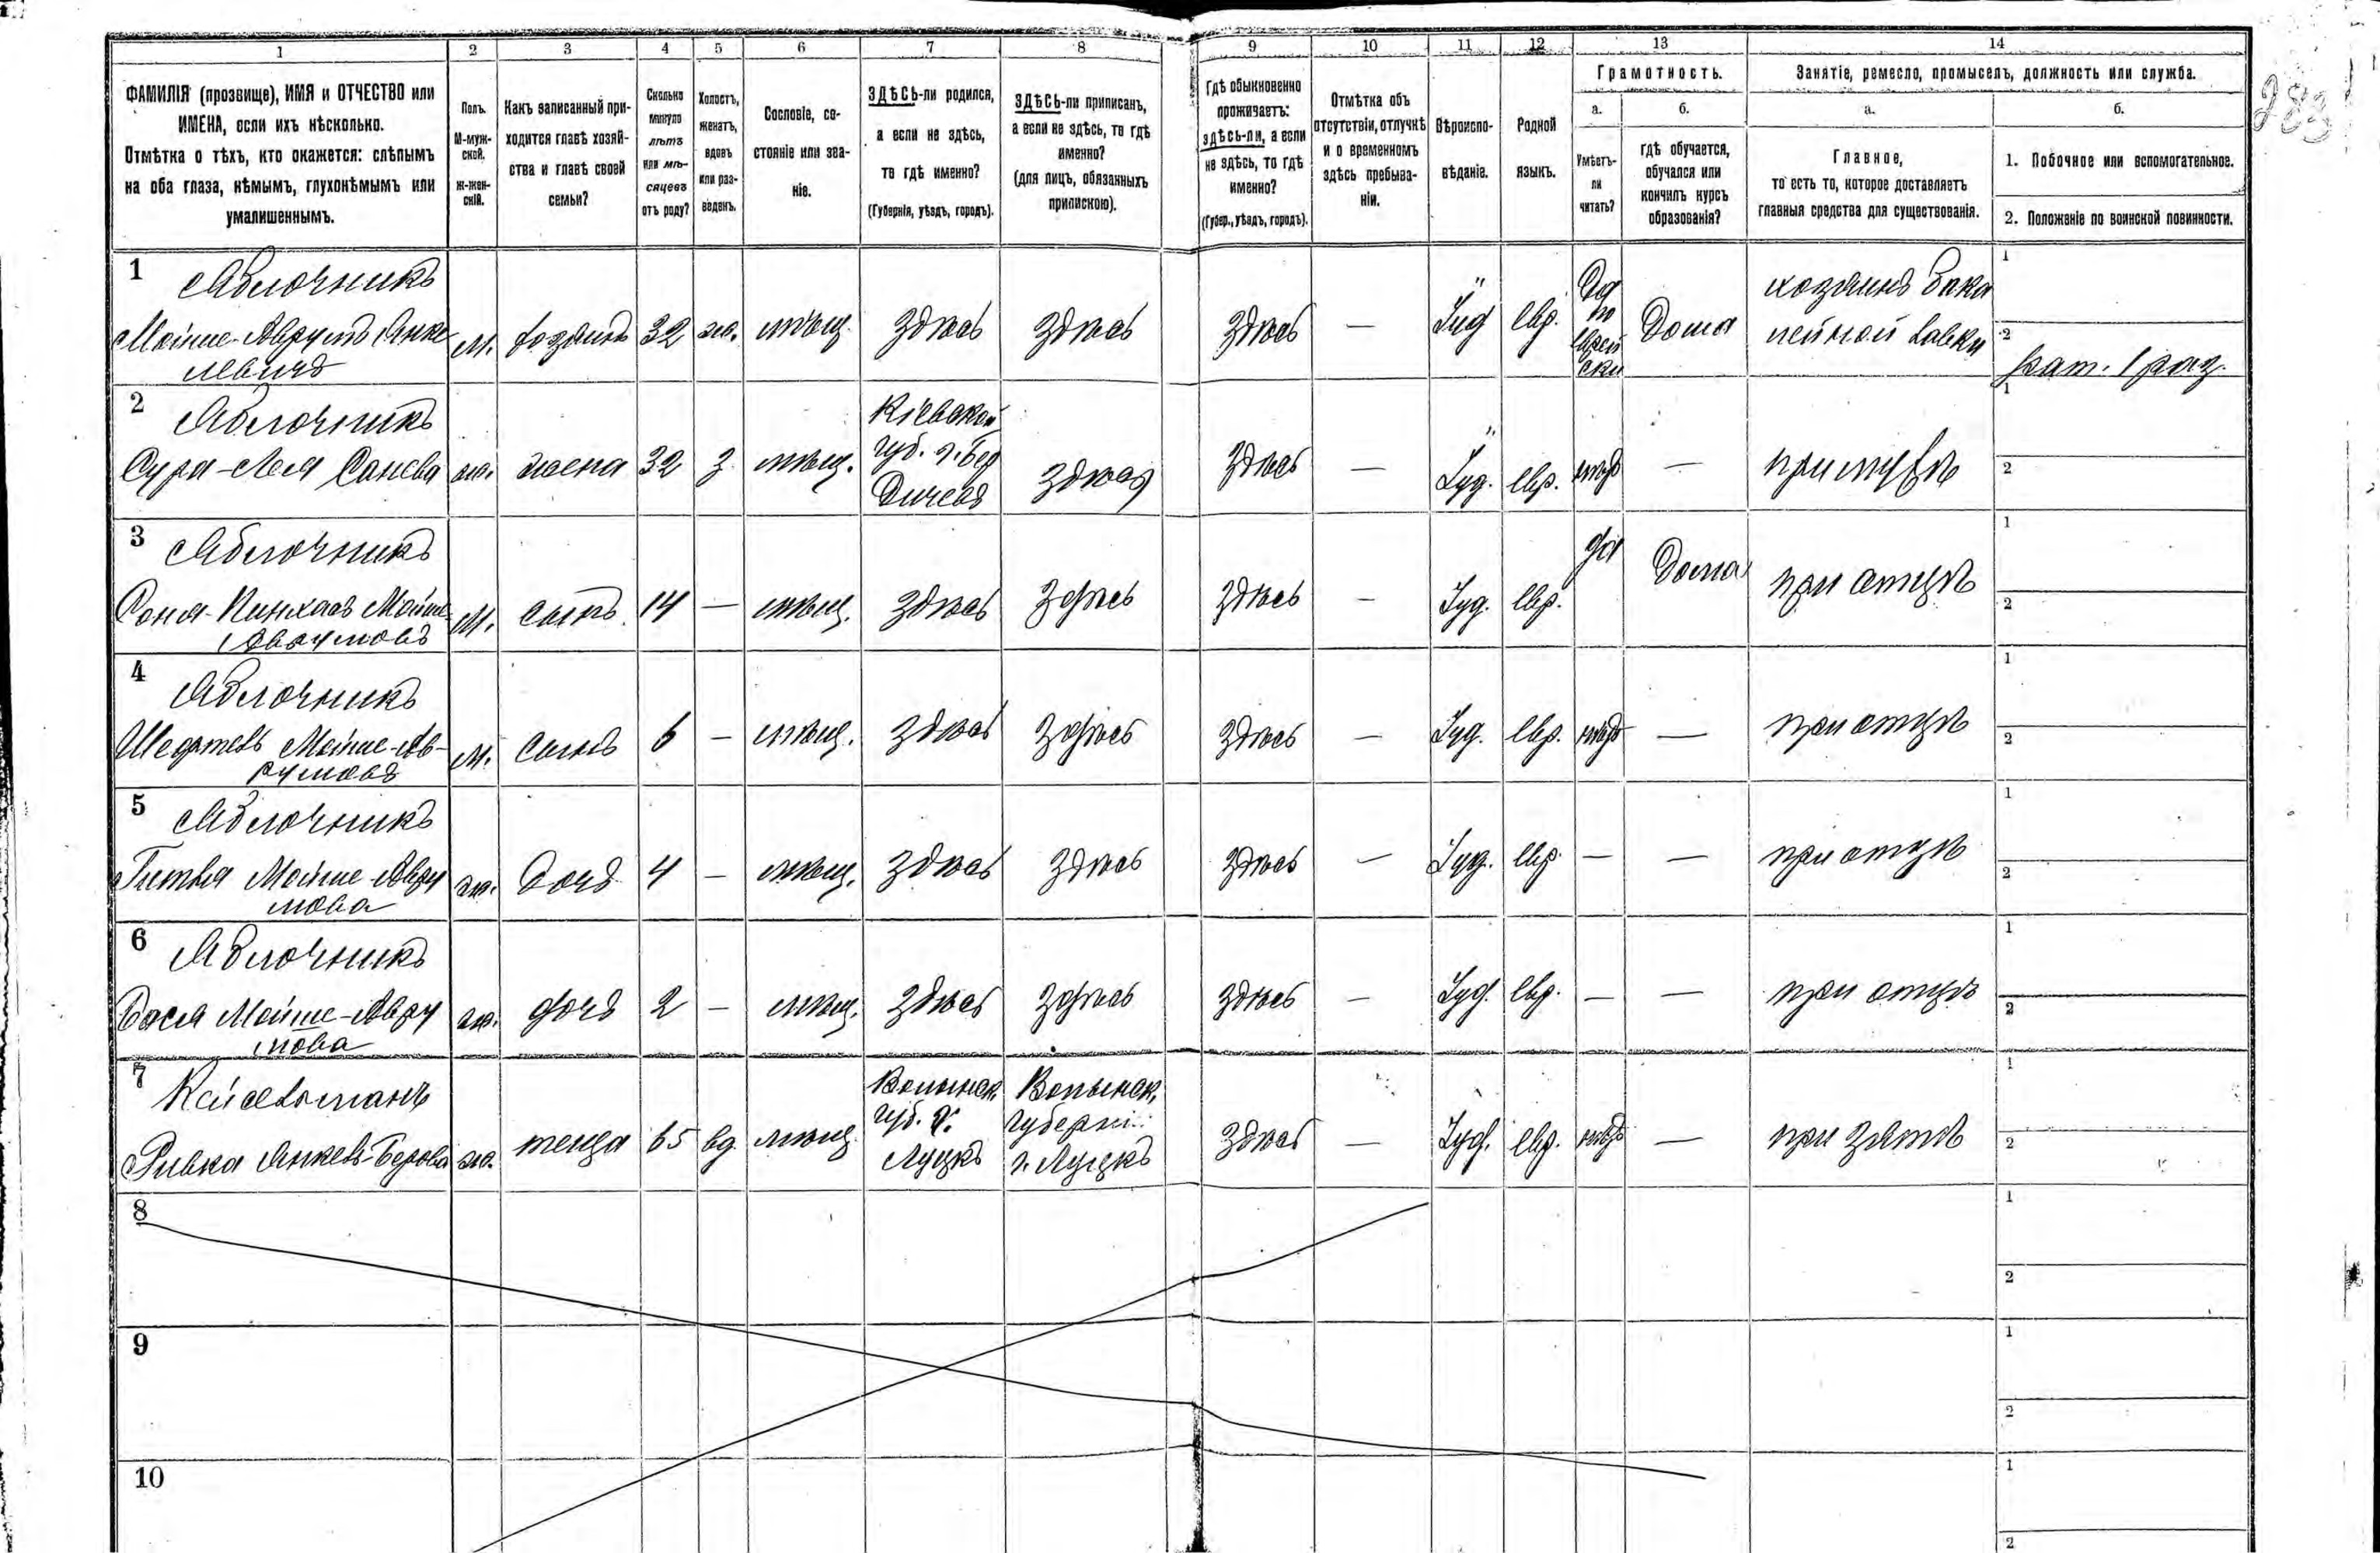 1 2 3 4 5 6 7 8 9 10 11 12 13 14
ФАМИЛІЯ (прозвище), ИМЯ и ОТЧЕСТВО или
ИМЕНА, если ихъ нѣсколько.
Отмѣтка о тѣхъ, кто окажется: слѣпымъ
на оба глаза, нѣмымъ, глухонѣмымъ или
умалишеннымъ.
Полъ.
М-муж-
ской.
Ж-жен-
скій.
Какъ записанный при-
ходится главѣ хозяй-
ства и главѣ своей
семьи?
Сколько
минуло
лѣтъ
или мѣ-
сяцевъ
отъ роду?
Холостъ,
женатъ,
вдовъ
или раз-
веденъ.
Сословіе, со-
стояніе или зва-
ніе.
ЗДѢСЬ-ли родился,
а если не здѣсь,
то гдѣ именно?
(Губернія, уѣздъ, городъ).
ЗДѢСЬ-ли приписанъ,
а если не здѣсь, то гдѣ
именно?
(для лицъ, обязанныхъ
припискою).
Гдѣ обыкновенно
проживаетъ:
здѣсь-ли, а если
не здѣсь, то гдѣ
именно?
(Губер., уѣздъ, городъ).
Отмѣтка объ
отсутствіи, отлучкѣ
и о временномъ
здѣсь пребыва-
ніи.
Вѣроиспо-
вѣданіе.
Родной
языкъ.
Грамотность.
а.
Умѣетъ-
ли
читать?
б.
гдѣ обучается,
обучался или
кончилъ курсъ
образованія?
Занятіе, ремесло, промыселъ, должность или служба.
а.
Главное,
то есть то, которое доставляетъ
главныя средства для существованія.
б.
1. Побочное или вспомогательное.
2. Положеніе по воинской повинности.
283
1 Яблочникъ
Мойше-Аврумъ Янке
левичъ
м. хозяинъ 32 ж. мѣщ. здѣсь здѣсь здѣсь — Іуд евр.
Да
по
еврей
ски
Дома
хозяинъ бака
лейной лавки
1
2 рат. 1 раз.
2 Яблочникъ
Сура-Лея
ж. жена 32 з. мѣщ.
Кіевской
губ. г. Бер
дичевъ
здѣсь здѣсь — Іуд. евр. нѣтъ — при мужѣ
1
2
3 Яблочникъ
Пинхасъ Мойше
Аврумовъ
м. сынъ. 14 — мѣщ. здѣсь здѣсь здѣсь — Іуд. евр. да Дома при отцѣ
1
2
4 Яблочникъ
Мойше-Ав-
румовъ
м. сынъ 6 — мѣщ. здѣсь здѣсь здѣсь — Іуд. евр. нѣтъ — при отцѣ
1
2
5 Яблочникъ
Гитля Мойше Авру
мова
ж. дочь 4 — мѣщ. здѣсь здѣсь здѣсь — Іуд. евр. — — при отцѣ
1
2
6 Яблочникъ
Бася Мойше-Авру
мова
ж. дочь 2 — мѣщ. здѣсь здѣсь здѣсь — Іуд. евр. — — при отцѣ
1
2
7
Ривка Янкель-Берова
ж. теща 65 вд. мѣщ.
Волынск.
губ. г.
Луцкъ
Волынск.
губерніи
г. Луцкъ
здѣсь — Іуд. евр. нѣтъ — при зятѣ
1
2
8
1
2
9
1
2
10
1
2